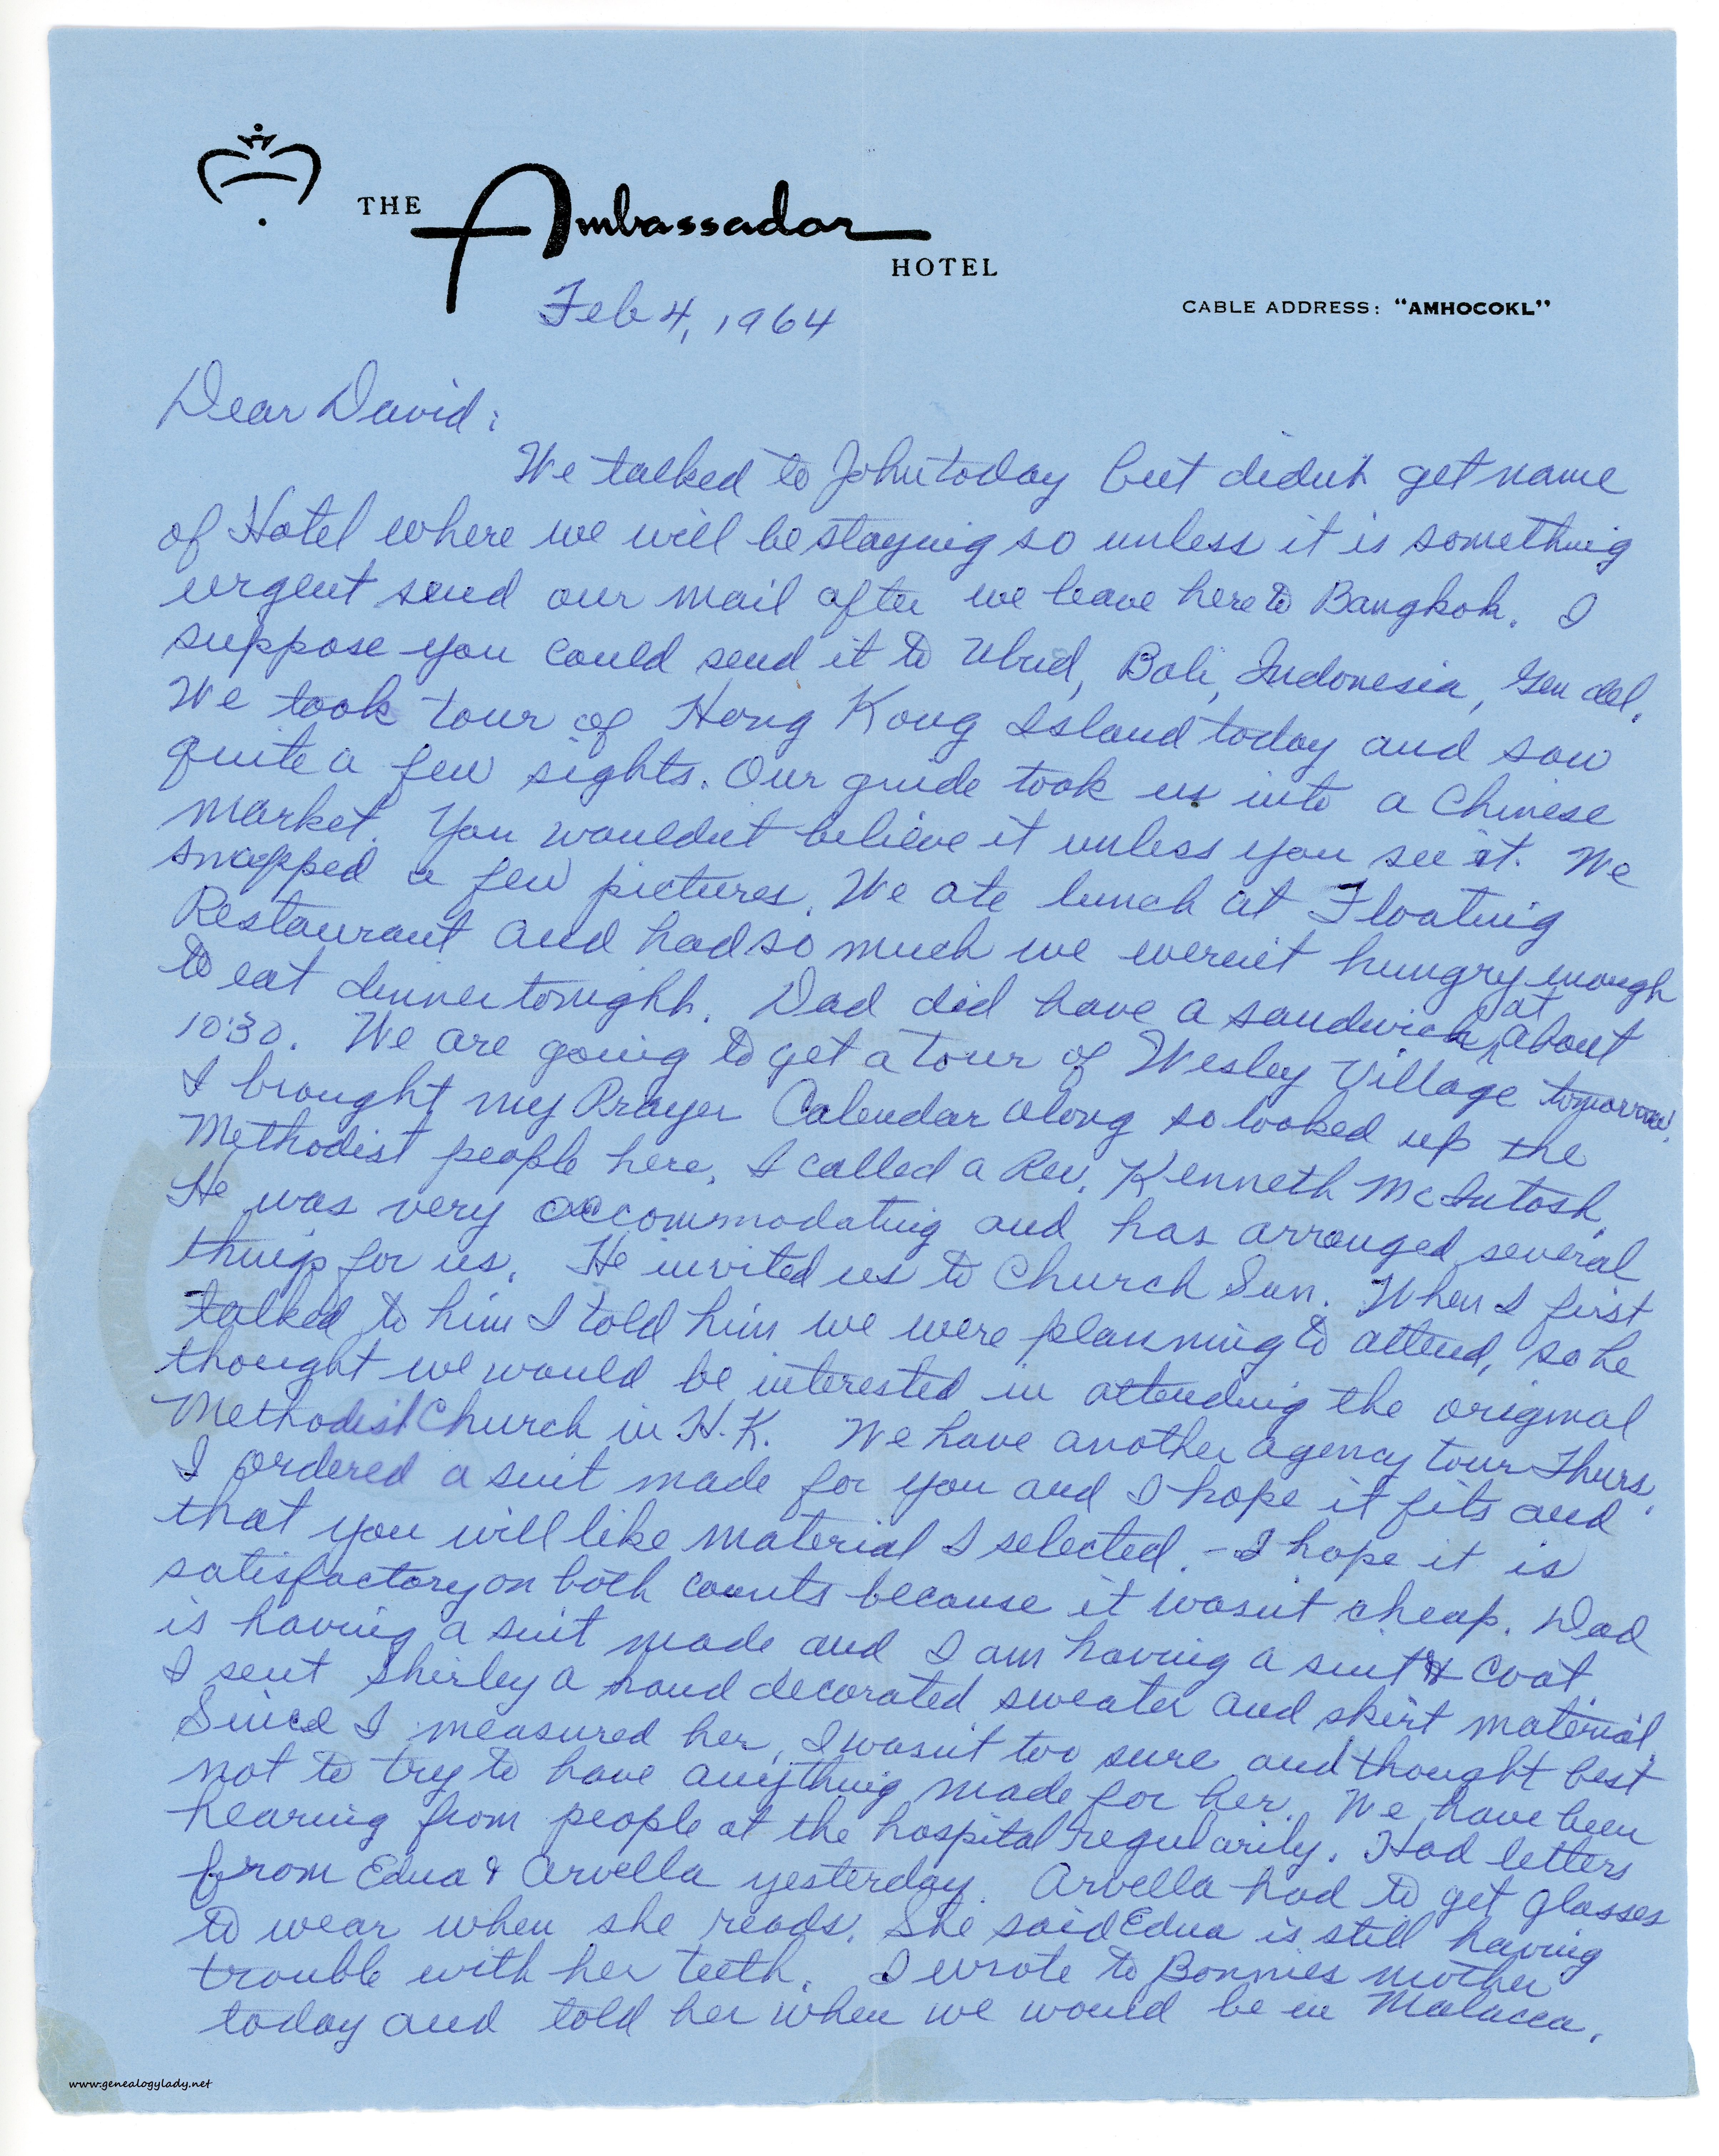 THE Ambassador HOTEL
CABLE ADDRESS: "AMHOCOKL"
Feb 4, 1964
Dear David:
We talked to John today but didn't get name
of Hotel where we will be staying so unless it is something
urgent send our mail after we leave here to Bangkok. I
suppose you could send it to Ubud, Bali, Indonesia, Gen del.
We took tour of Hong Kong Island today and saw
quite a few sights. Our guide took us into a Chinese
market. You wouldn't believe it unless you see it. We
snapped a few pictures. We ate lunch at Floating
Restaurant and had so much we weren't hungry enough
to eat dinner tonight. Dad did have a sandwich at about
10:30. We are going to get a tour of Wesley Village tomorrow.
I brought my Prayer Calendar along so looked up the
Methodist people here. I called a Rev. Kenneth McIntosh.
He was very accommodating and has arranged several
things for us. He invited us to Church Sun. When I first
talked to him I told him we were planning to attend, so he
thought we would be interested in attending the original
Methodist Church in H.K. We have another agency tour Thurs.
I ordered a suit made for you and I hope it fits and
that you will like material I selected. - I hope it is
satisfactory on both counts because it wasn't cheap. Dad
is having a suit made and I am having a suit & coat
I sent Shirley a hand decorated sweater and skirt material.
Since I measured her, I wasn't too sure and thought best
not to try to have anything made for her. We have been
hearing from people at the hospital regularily. Had letters
from Edna & Arvella yesterday. Arvella had to get glasses
to wear when she reads. She said Edna is still having
trouble with her teeth. I wrote to Bonnies mother
today and told her when we would be in Malacca.
www.genealogylady.net